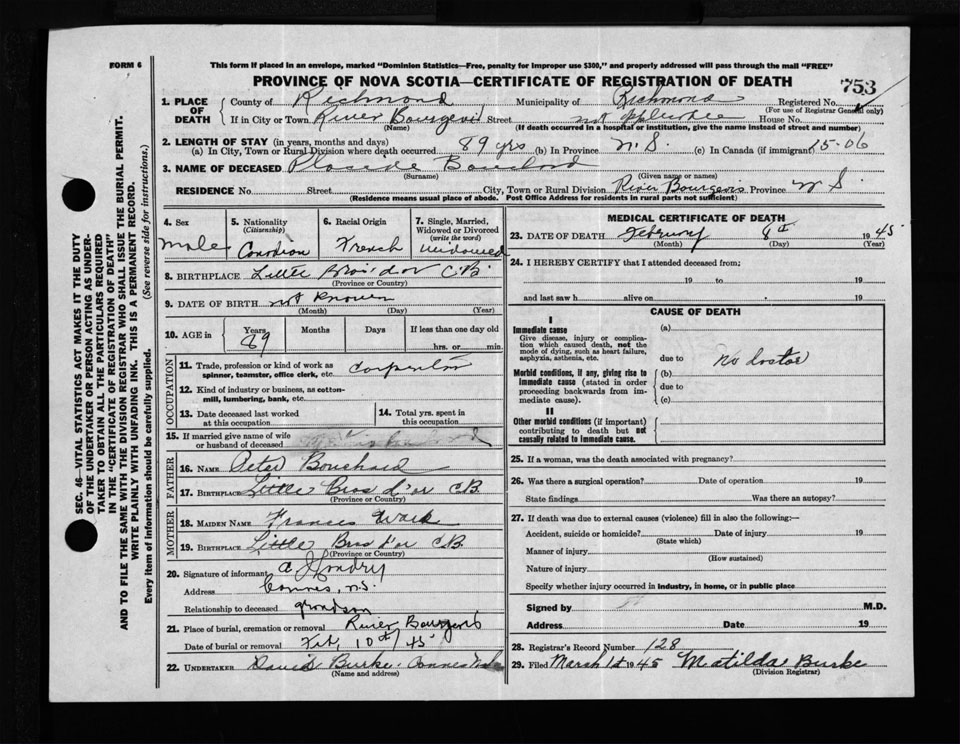 FORM 6
This form if placed in an envelope, marked "Dominion Statistics—Free, penalty for improper use $300," and properly addressed will pass through the mail "FREE"
PROVINCE OF NOVA SCOTIA—CERTIFICATE OF REGISTRATION OF DEATH
753
1. PLACE OF DEATH
County of Richmond Municipality of Richmond Registered No.
(For use of Registrar General only)
If in City or Town River Bourgeois Street not applicable House No.
(Name) (If death occurred in a hospital or institution, give the name instead of street and number)
2. LENGTH OF STAY (in years, months and days)
(a) In City, Town or Rural Division where death occurred 89 yrs (b) In Province N.S. (c) In Canada (if immigrant) 15-06
3. NAME OF DECEASED Placide
(Surname) (Given name or names)
RESIDENCE No. Street City, Town or Rural Division River Bourgeois Province N S.
(Residence means usual place of abode. Post Office Address for residents in rural parts not sufficient)
4. Sex
male
5. Nationality
(Citizenship)
Canadian
6. Racial Origin
French
7. Single, Married, Widowed or Divorced
(write the word)
widowed
8. BIRTHPLACE Little Bras d'or C.B.
(Province or Country)
9. DATE OF BIRTH not known
(Month) (Day) (Year)
10. AGE in
Years Months Days If less than one day old
89 hrs. or min.
OCCUPATION
11. Trade, profession or kind of work as spinner, teamster, office clerk, etc. Carpenter
12. Kind of industry or business, as cotton-mill, lumbering, bank, etc.
13. Date deceased last worked at this occupation
14. Total yrs. spent in this occupation
15. If married give name of wife or husband of deceased
FATHER
16. NAME Peter Bouchard
17. BIRTHPLACE Little Bras d'or C.B.
(Province or Country)
MOTHER
18. MAIDEN NAME Frances
19. BIRTHPLACE Little Bras d'or C.B.
(Province or Country)
20. Signature of informant A J Landry
Address Cannes, N.S.
Relationship to deceased grandson
21. Place of burial, cremation or removal River Bourgeois
Date of burial or removal Feb 10th/45
22. UNDERTAKER David Burke. Cannes
(Name and address)
MEDICAL CERTIFICATE OF DEATH
23. DATE OF DEATH February 8th 1945
(Month) (Day) (Year)
24. I HEREBY CERTIFY that I attended deceased from:
19 to 19
and last saw h alive on 19
CAUSE OF DEATH
I
Immediate cause
Give disease, injury or complication which caused death, not the mode of dying, such as heart failure, asphyxia, asthenia, etc.
(a)
due to no doctor
Morbid conditions, if any, giving rise to immediate cause (stated in order proceeding backwards from immediate cause).
(b)
due to
(c)
II
Other morbid conditions (if important) contributing to death but not causally related to immediate cause.
25. If a woman, was the death associated with pregnancy?
26. Was there a surgical operation? Date of operation 19
State findings Was there an autopsy?
27. If death was due to external causes (violence) fill in also the following:—
Accident, suicide or homicide? Date of injury 19
(State which)
Manner of injury
(How sustained)
Nature of injury
Specify whether injury occurred in industry, in home, or in public place
Signed by M.D.
Address Date 19
28. Registrar's Record Number 128
29. Filed March 1st 1945 Matilda Burke
(Division Registrar)
SEC. 46—VITAL STATISTICS ACT MAKES IT THE DUTY
OF THE UNDERTAKER OR PERSON ACTING AS UNDER-
TAKER TO OBTAIN ALL THE PARTICULARS REQUIRED
IN THE "CERTIFICATE OF REGISTRATION OF DEATH"
AND TO FILE THE SAME WITH THE DIVISION REGISTRAR WHO SHALL ISSUE THE BURIAL PERMIT.
WRITE PLAINLY WITH UNFADING INK. THIS IS A PERMANENT RECORD.
Every item of information should be carefully supplied. (See reverse side for instructions.)